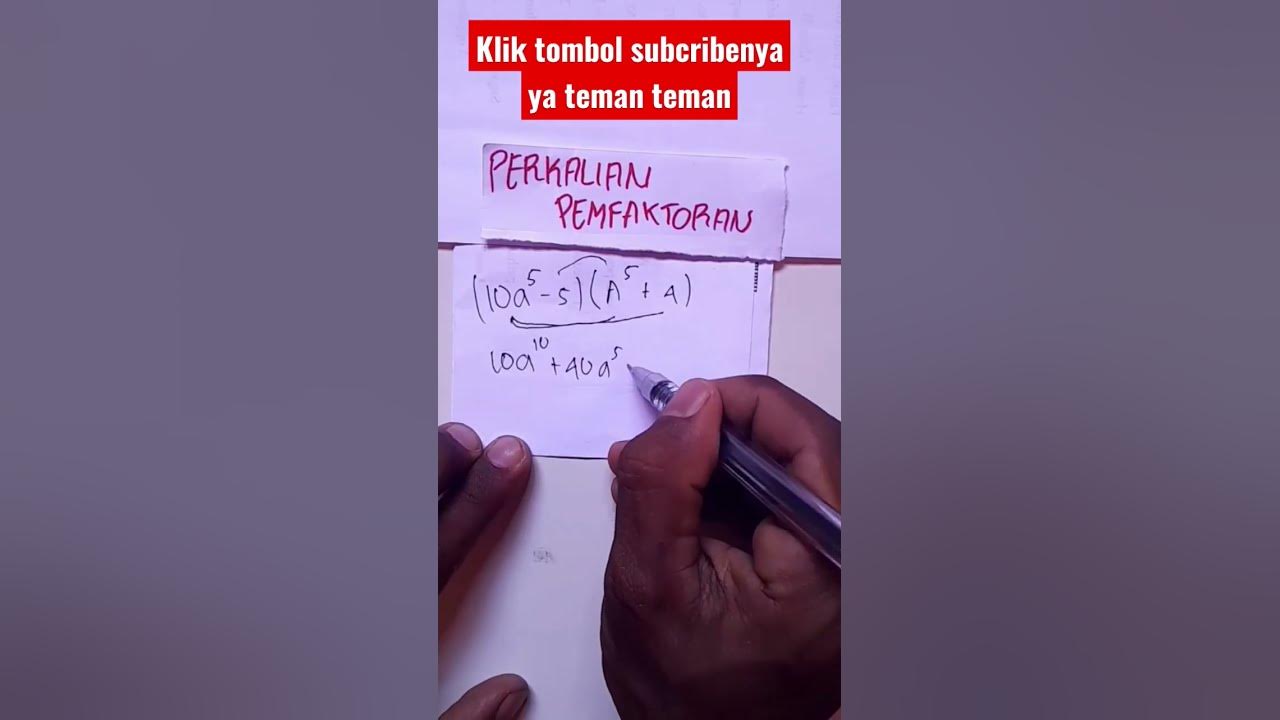 Klik tombol subcribenya
ya teman teman
PERKALIAN
PEMFAKTORAN
(10a⁵-5)(A⁵+4)
10a¹⁰+40a⁵